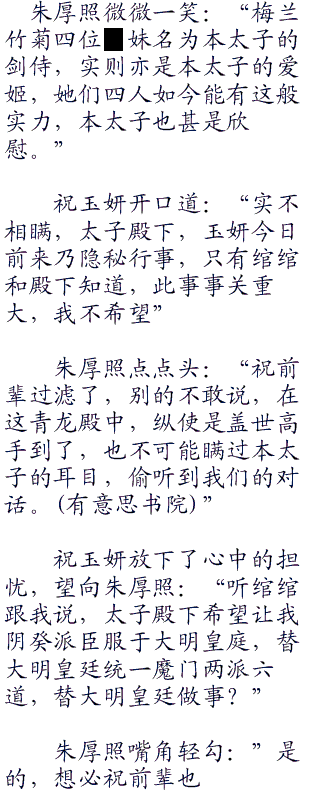 朱厚照微微一笑：“梅兰
竹菊四位妹名为本太子的
剑侍，实则亦是本太子的爱
姬，她们四人如今能有这般
实力，本太子也甚是欣
慰。”
祝玉妍开口道：“实不
相瞒，太子殿下，玉妍今日
前来乃隐秘行事，只有绾绾
和殿下知道，此事事关重
大，我不希望”
朱厚照点点头：“祝前
辈过滤了，别的不敢说，在
这青龙殿中，纵使是盖世高
手到了，也不可能瞒过本太
子的耳目，偷听到我们的对
话。(有意思书院)”
祝玉妍放下了心中的担
忧，望向朱厚照：“听绾绾
跟我说，太子殿下希望让我
阴癸派臣服于大明皇庭，替
大明皇廷统一魔门两派六
道，替大明皇廷做事？”
朱厚照嘴角轻勾：”是
的，想必祝前辈也